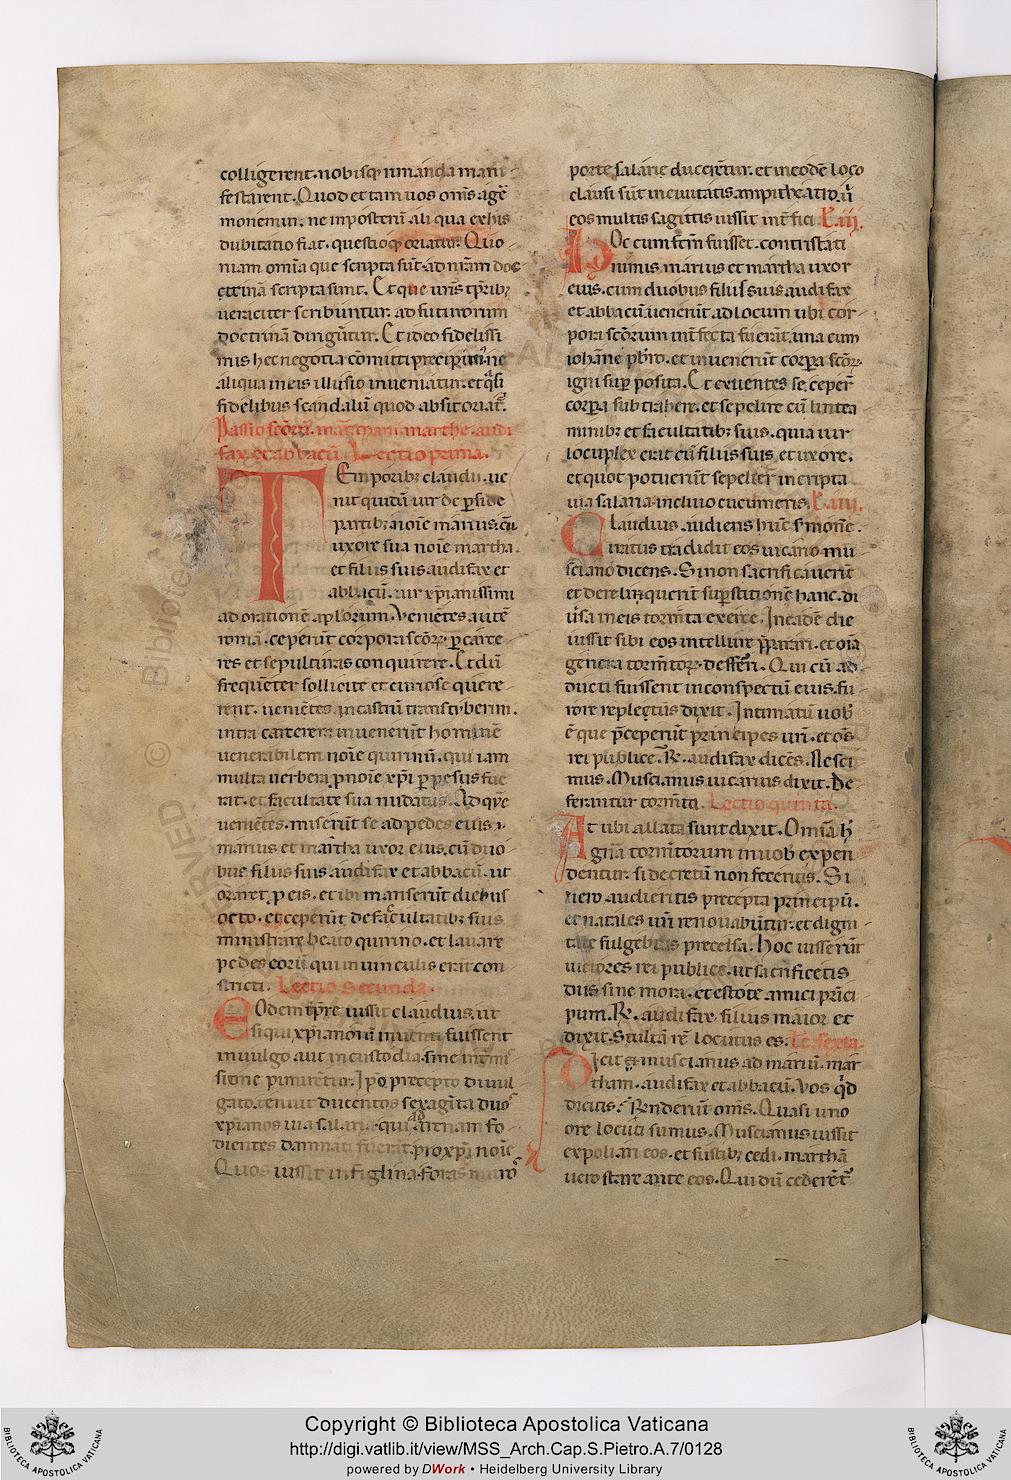 colligerent. nobisq; inmanda mani
festarent. Quod et tam uos om̅s age̅
monemur. ne inposteru̅ aliqua exhis
dubitatio fiat. questioq; oriatur. Quo
niam omi̅a que scripta su̅t. ad nr̅am doc
ctrina̅ scripta sunt. Et que ur̅is tp̅ribꝫ
ueraciter scribuntur. ad futurorum
doctrina̅ dirigu̅tur. Et ideo fidelissi
mis hec negotia co̅mitti precipimus. ne
aliqua in eis illusio inueniatur. et q̅si
fidelibus scandalu̅ quod absit oriat̅.
Passio sc̅oru̅. mar̅. marii. marthe. audi
fax. et abbacu̅. Lectio prima.
TEmporibꝫ claudii. ue
nit quida̅ uir de ꝑside
partibꝫ. noi̅e marius. cu̅
uxore sua noi̅e martha.
et filiis suis audifax et
abbacu̅. uir xp̅ianissimi
ad oratione̅ aplorum. Venie̅tes aute̅
roma̅. ceperu̅t corpora sc̅oꝝ. ꝑ carce
res et sepulturas conquirere. Et du̅
freque̅ter sollicite et curiose quere
rent. uenie̅tes in castru̅ transtyberim.
intra carcerem inueneru̅t homine̅
uenerabilem noi̅e quirinu̅. qui iam
multa uerbera ꝓ noi̅e xp̅i ꝑpessus fue
rat. et facultate sua nudatus. Ad que̅
uenie̅tes. miseru̅t se ad pedes eius.
marius et martha uxor eius. cu̅ duo
bus filiis suis. audifax et abbacu̅. ut
oraret ꝓ eis. et ibi manseru̅t diebus
octo. et ceperu̅t de facultatibꝫ suis
ministrare beato quirino. et lauare
pedes eoru̅ qui in uinculis era̅t con
stricti. Lectio secunda.
EOdem tp̅re iussit claudius. ut
siqui xp̅ianoru̅ inuenti fuissent
in uulgo aut in custodia. sine inte̅rris
sione punire̅tur. Ip̅o precepto diuul
gato. tenuit ducentos sexaginta duos
xp̅ianos uia salaria. qui ad arenam fo
dientes damnati fuera̅t. ꝓ xp̅i noi̅e
Quos iussit in figlina. foras muro̅
porte salarie ducere̅tur. et in eode̅ loco
clausi su̅t in ciuitatis ampitheatro. u̅
eos multis sagittis iussit int̅fici. L̅. iii.
HOc cum fc̅m fuisset. contristati
nimis marius et martha uxor
eius. cum duobus filiis suis audifax
et abbacu̅. ueneru̅t ad locum ubi cor
pora sc̅orum int̅fecta fuera̅t. una cum
ioha̅ne pb̅ro. et inuenerunt corꝑa sc̅oꝝ.
igni suꝑ posita. Et exuentes se. ceper̅
corꝑa subtrahere. et sepelire cu̅ lintea
minibꝫ et facultatibꝫ suis. quia uir
locuplex erat cu̅ filiis suis. et uxore.
et quot potueru̅t sepelier̅ in cripta
uia salaria. in cliuo cucumeris. L̅. iiii.
Claudius audiens hunc s̅mone̅.
iratus tradidit eos uicario mu
sciano dicens. Si non sacrificauerit
et derelinquerit suꝑstitione̅ hanc. di
uersa in eis torm̅ta exerce. In eade̅ die
iussit sibi eos intellure p̅parari. et oi̅a
genera torm̅toꝝ. defferri. Qui cu̅ ad
ducti fuissent in conspectu̅ eius. fu
rore repletus dixit. Intimatu̅ uob̅
e̅ que p̅ceperu̅t principes ur̅i. et o̅s
rei publice. R̅. audifax dice̅s. Nesci
mus. Muscianus uicarius dixit. De
ferantur torm̅ta. Lectio quinta.
At ubi allata sunt dixit. Omi̅a h̅
genera torm̅torum in uob̅ expen
dentur. si decretu̅ non feceritis. Si
uero audieritis precepta principu̅.
et natales ur̅i renouabu̅tur. et digni
tate fulgebitis precelsa. Hoc iusseru̅t
uictores rei publice. ut sacrificetis
diis sine mora. et estote amici prin̅ci
pum. R̅. audifax filius maior et
dixit. Stulta̅ re̅ locutus es. Lc̅. sexta.
Dicit ei muscianus ad mariu̅. mar
tham. audifax et abbacu̅. Vos q̅d
dicitis. Renderu̅t om̅s. Quasi uno
ore locuti sumus. Muscianus iussit
expoliari eos. et fustibꝫ cedi. martha̅
uero stare ante eos. Qui du̅ cedere̅t̅
Copyright © Biblioteca Apostolica Vaticana
http://digi.vatlib.it/view/MSS_Arch.Cap.S.Pietro.A.7/0128
powered by DWork • Heidelberg University Library
BIBLIOTECA APOSTOLICA VATICANA
BIBLIOTECA APOSTOLICA VATICANA